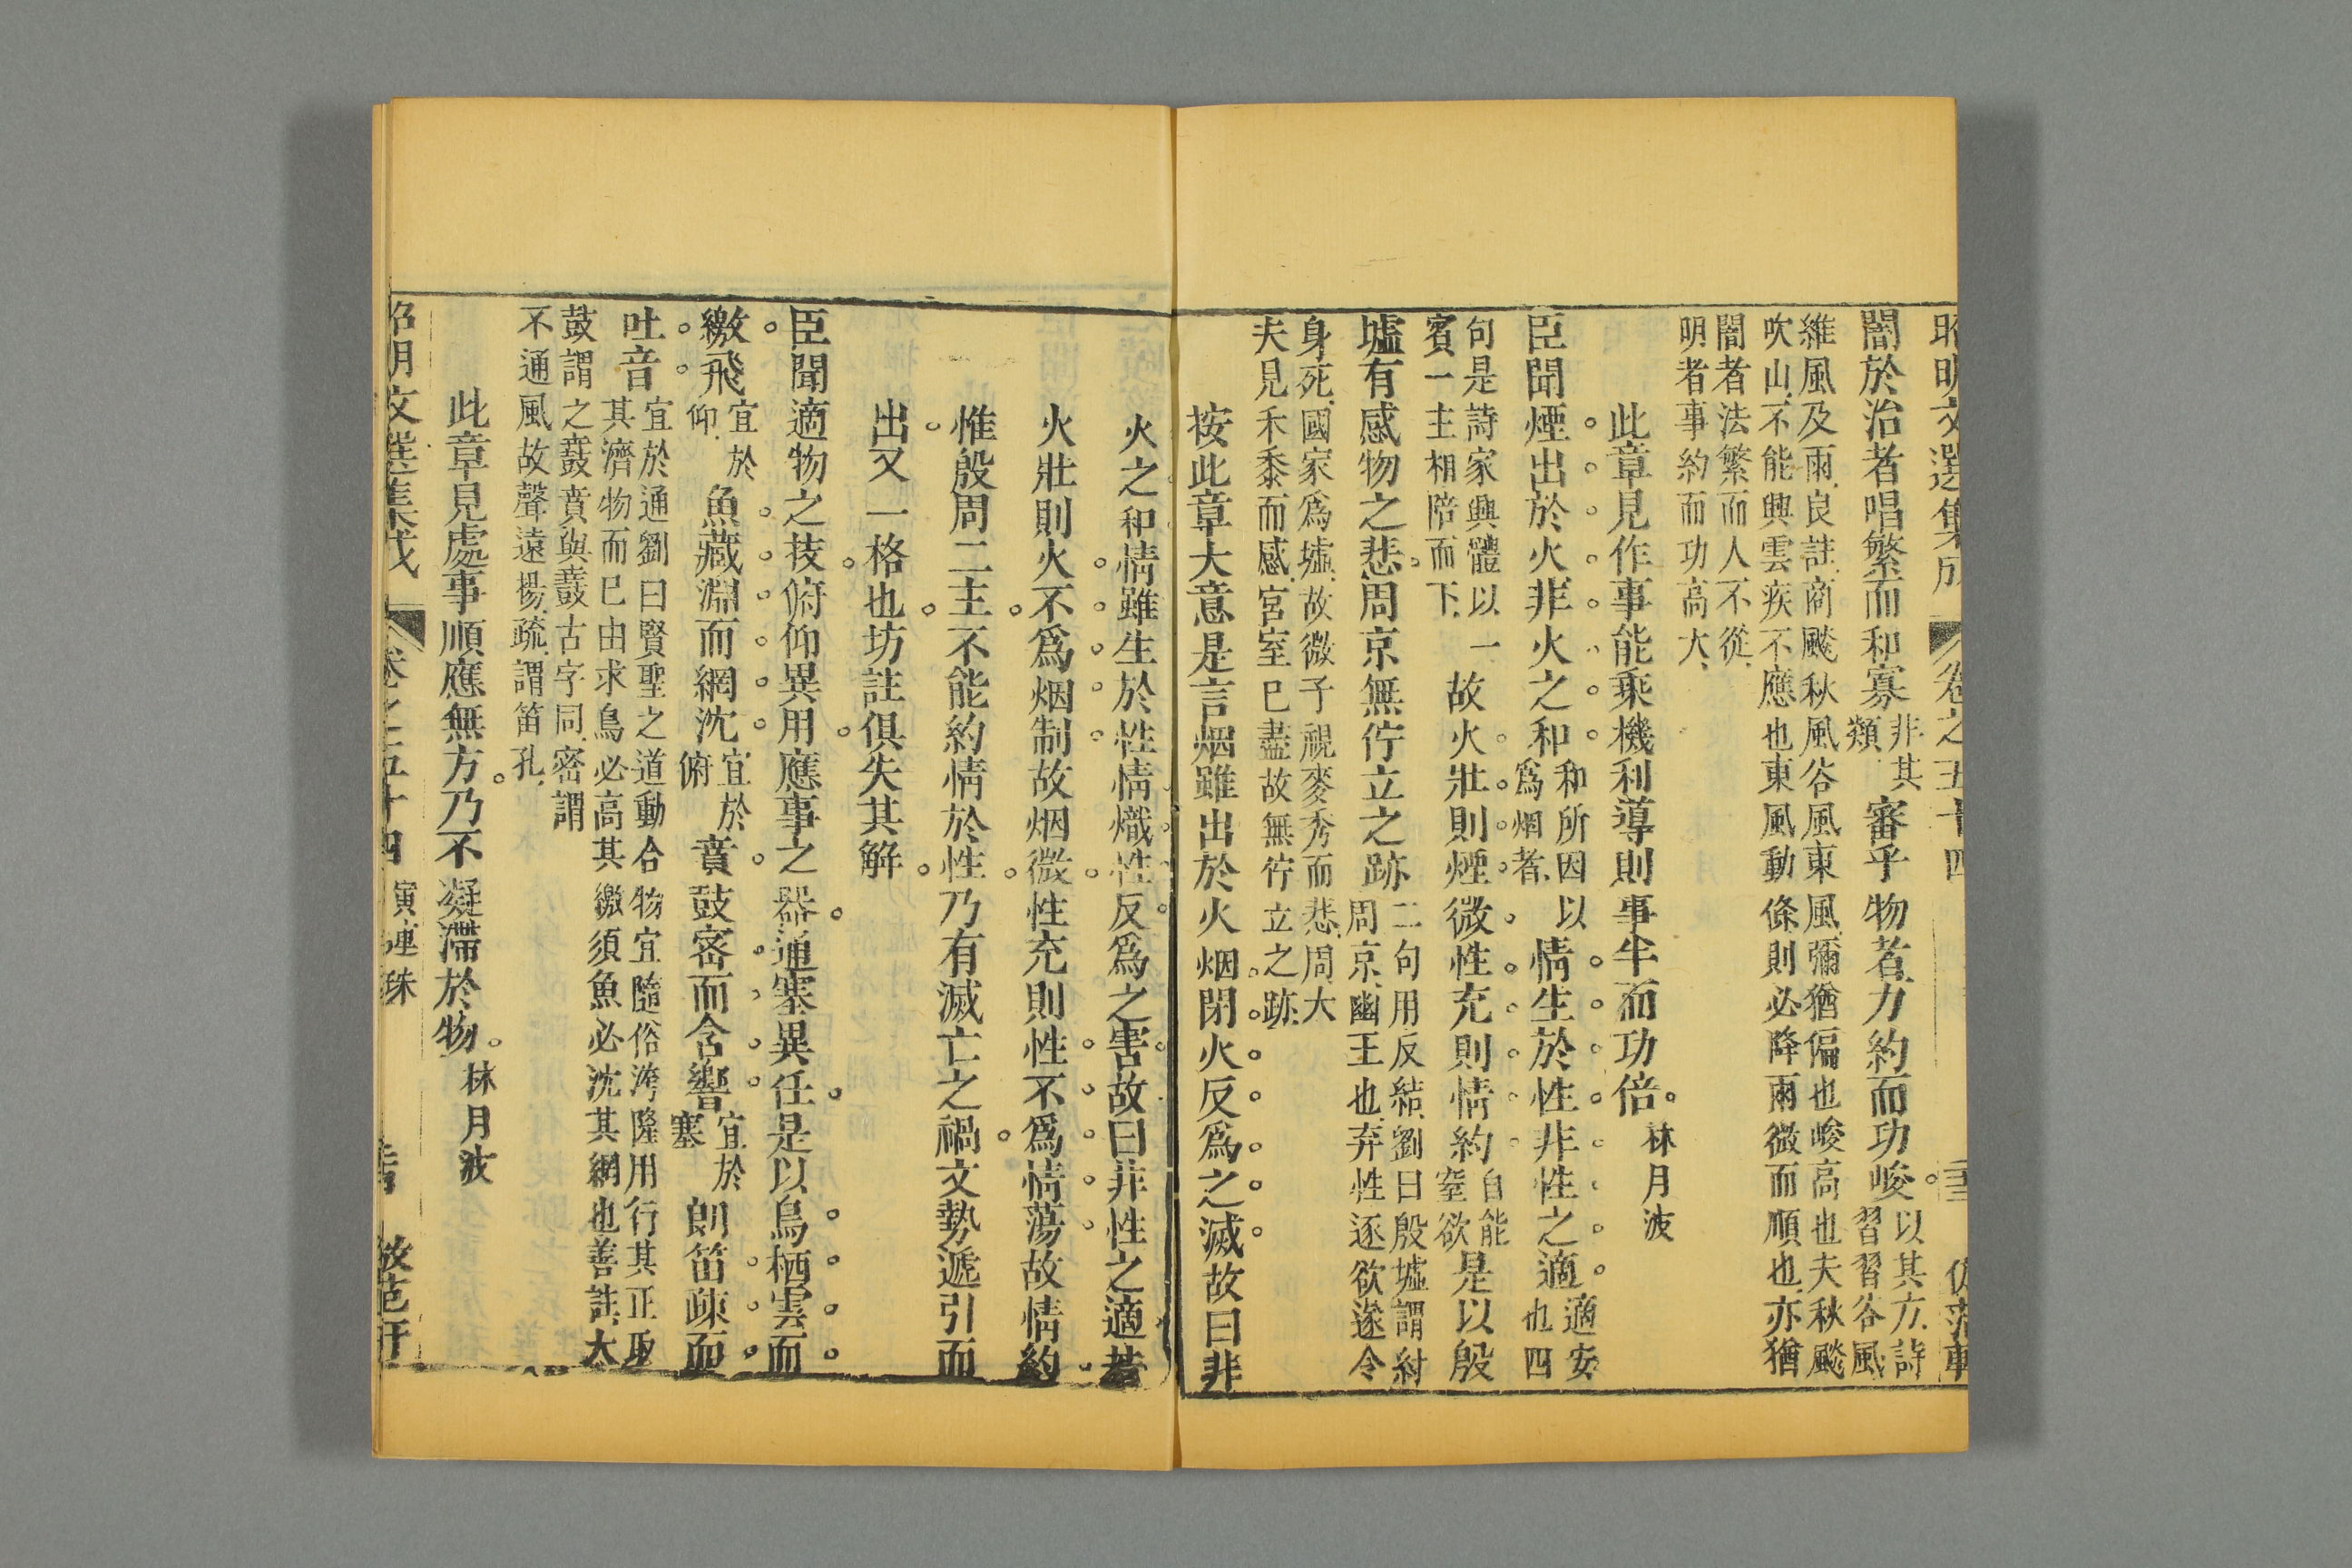 昭明文選集成 卷之五十四
闇於治者唱繁而和寡非其類審乎物者力約而功峻以其方詩習習谷風
維風及雨良註商飈秋風谷風東風彌猶偏也峻高也夫秋飈
吹山不能興雲疾不應也東風動條則必降雨微而順也亦猶
闇者法繁而人不從
明者事約而功高大
此章見作事能乘機利導則事半而功倍林月波
臣聞煙出於火非火之和和所因以爲烟者情生於性非性之適適安也四
句是詩家興體以一賓一主相陪而下故火壯則煙微性充則情約自能窒欲是以殷
墟有感物之悲周京無佇立之跡二句用反結劉曰殷墟謂紂周京幽王也弃性逐欲遂令
身死國家爲墟故微子視麥秀而悲周大
夫見禾黍而感宮室已盡故無佇立之跡
按此章大意是言烟雖出於火烟閉火反爲之滅故曰非
火之和情雖生於性情熾性反爲之害故曰非性之適若
火壯則火不爲烟制故烟微性充則性不爲情蕩故情約
惟殷周二主不能約情於性乃有滅亡之禍文勢遞引而
出又一格也坊註俱失其解
臣聞適物之技俯仰異用應事之器通塞異任是以鳥栖雲而
繳飛宜於仰魚藏淵而網沈宜於俯賁鼓密而含響宜於塞朗笛疎而
吐音宜於通劉曰賢聖之道動合物宜隨俗洿隆用行其正取
其濟物而已由求鳥必高其繳須魚必沈其網也善註大
鼓謂之鼖賁與鼖古字同密謂
不通風故聲遠揚疏謂笛孔
此章見處事順應無方乃不凝滯於物林月波
昭明文選集成 卷之五十四 演連珠